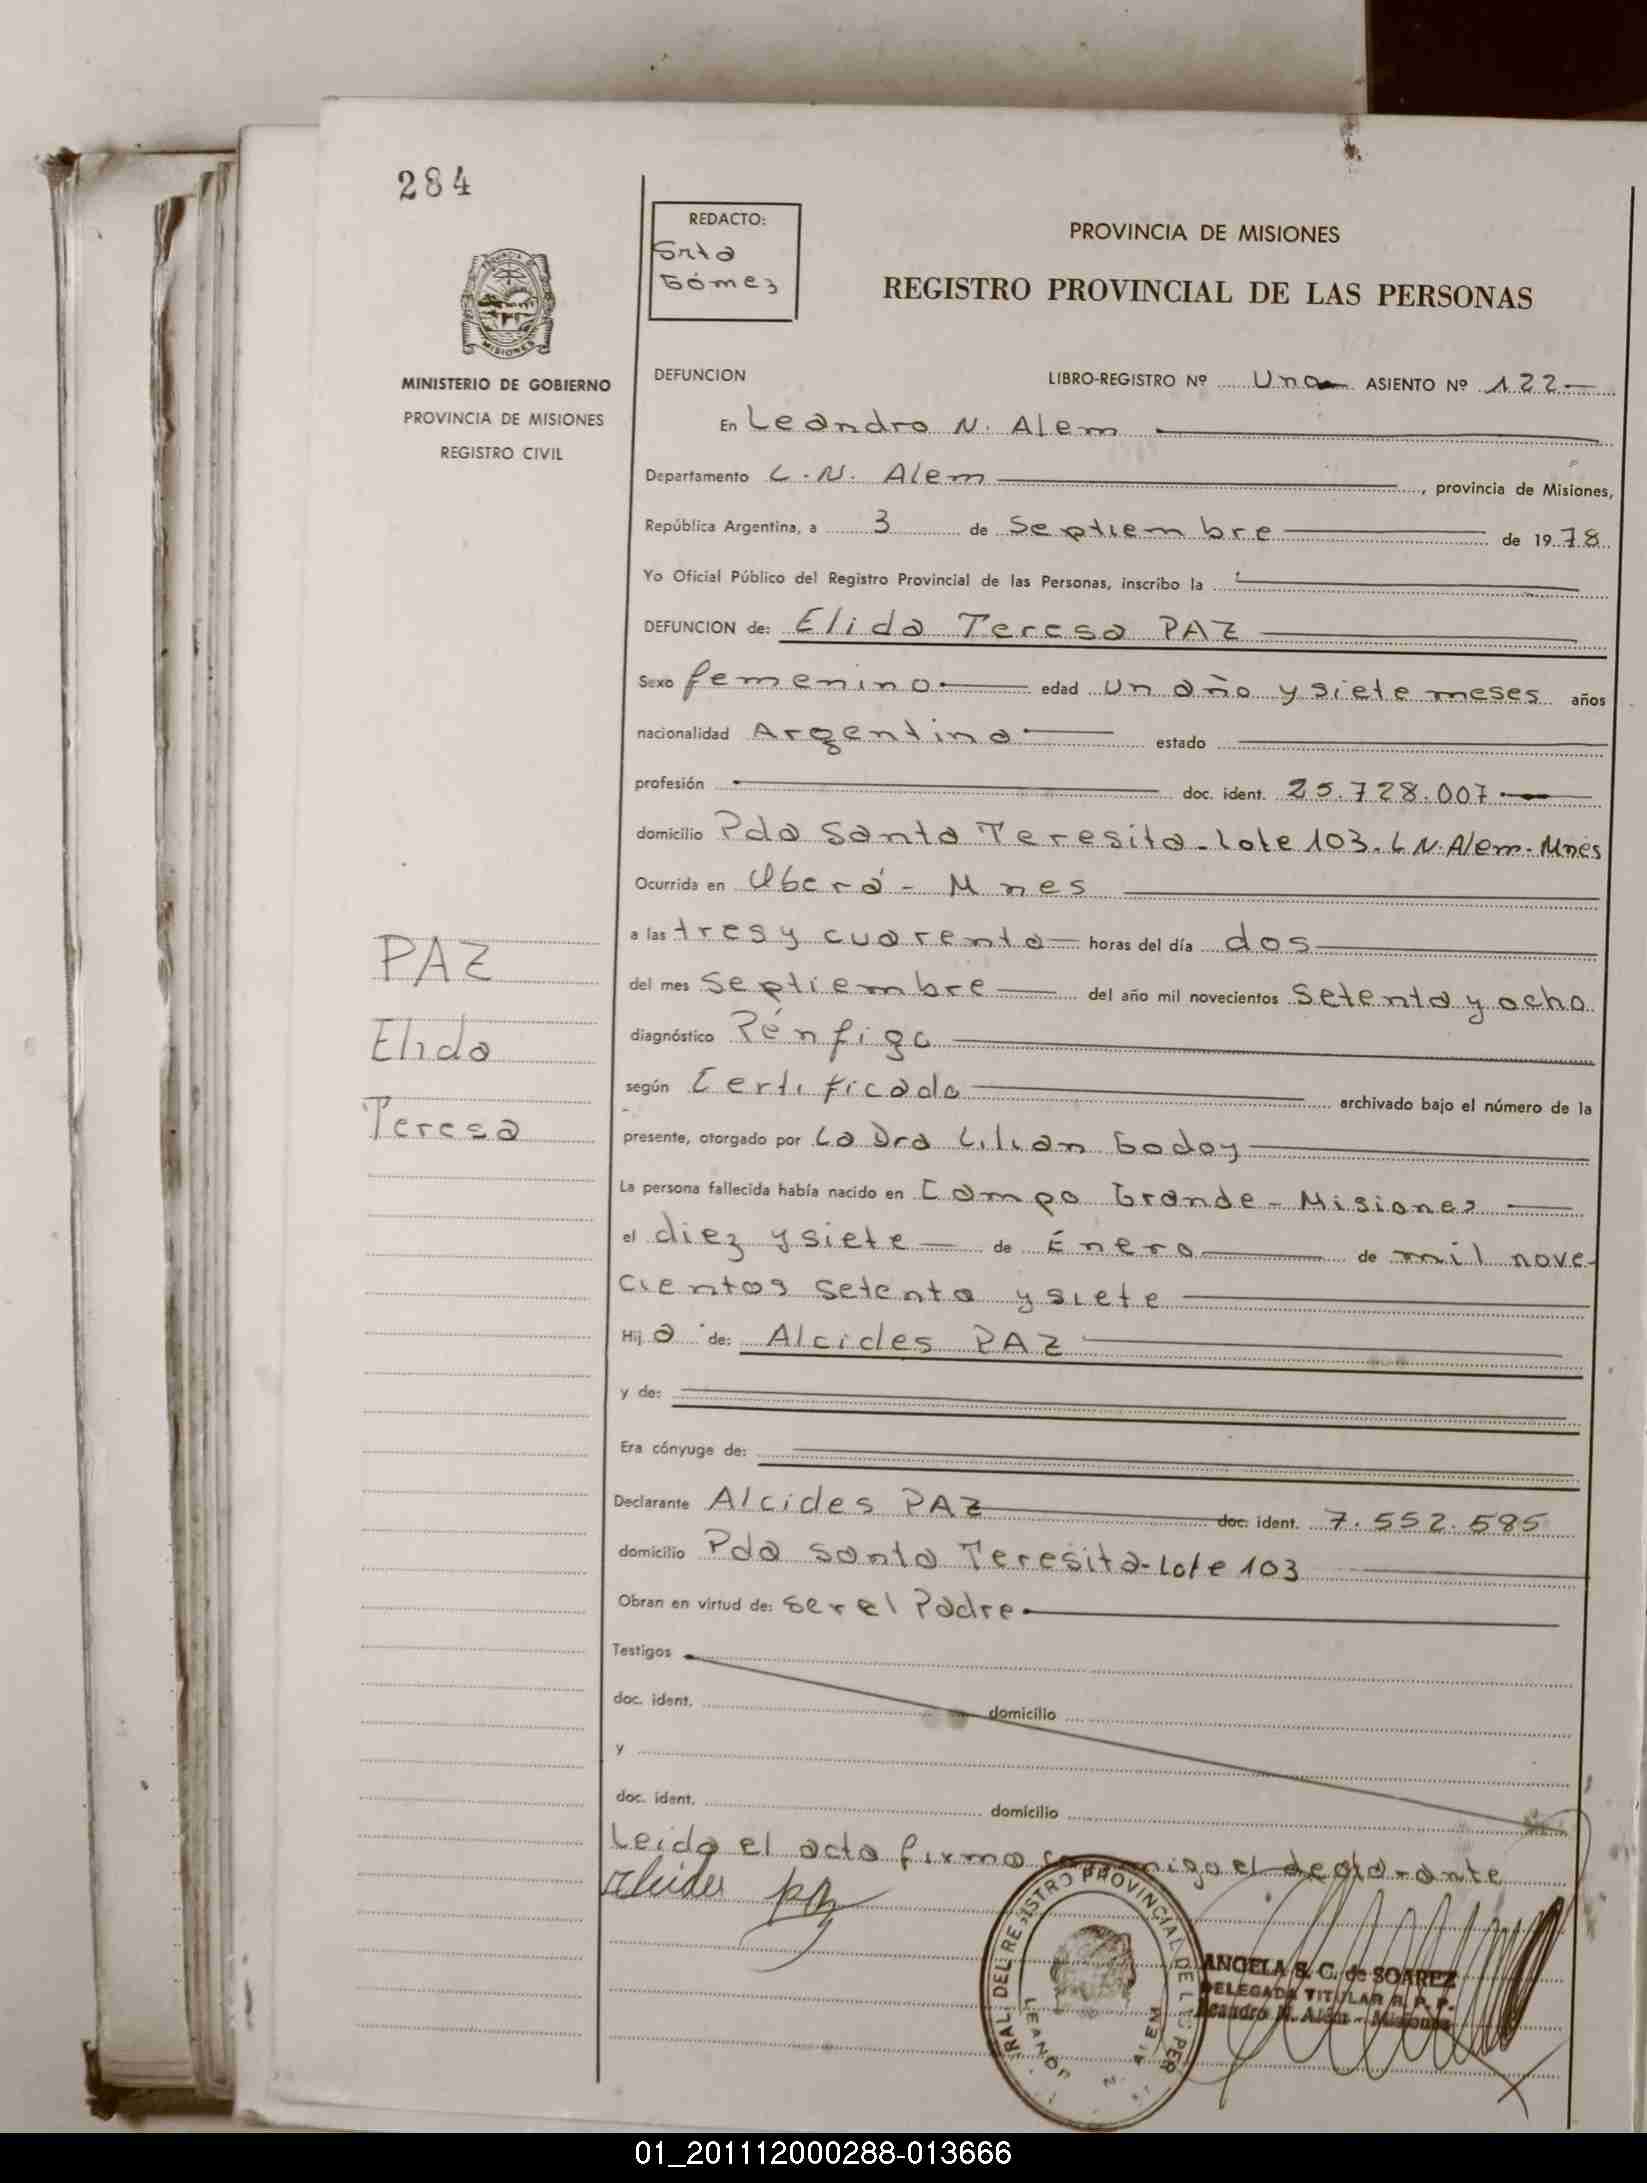 284
REDACTO:
Srta
Gómez
PROVINCIA DE MISIONES
REGISTRO PROVINCIAL DE LAS PERSONAS
MISIONES
MINISTERIO DE GOBIERNO
PROVINCIA DE MISIONES
REGISTRO CIVIL
DEFUNCION LIBRO-REGISTRO Nº Uno ASIENTO Nº 122
En Leandro N. Alem
Departamento L. N. Alem, provincia de Misiones,
República Argentina, a 3 de Septiembre de 1978
Yo Oficial Público del Registro Provincial de las Personas, inscribo la
DEFUNCION de: Elida Teresa PAZ
Sexo femenino edad un año y siete meses años
nacionalidad Argentina estado
profesión doc. ident. 25.728.007
domicilio Pda Santa Teresita - Lote 103. L N. Alem - Mnes
Ocurrida en Oberá - Mnes
a las tres y cuarenta horas del día dos
del mes septiembre del año mil novecientos setenta y ocho
diagnóstico Pénfigo
según Certificado archivado bajo el número de la
presente, otorgado por La Dra Lilian Godoy
La persona fallecida había nacido en Campo Grande - Misiones
el diez y siete de Enero de mil nove-
cientos setenta y siete
Hija de: Alcides PAZ
y de:
Era cónyuge de:
Declarante Alcides PAZ doc. ident. 7.552.585
domicilio Pda Santa Teresita - Lote 103
Obran en virtud de: ser el Padre
Testigos
doc. ident. domicilio
y
doc. ident. domicilio
Leida el acta firma conmigo el declarante
Alcides Paz
PAZ
Elida
Teresa
ANGELA S. C. de SOAREZ
DELEGADA TITULAR R. P. P.
Leandro N. Alem - Misiones
01_201112000288-013666